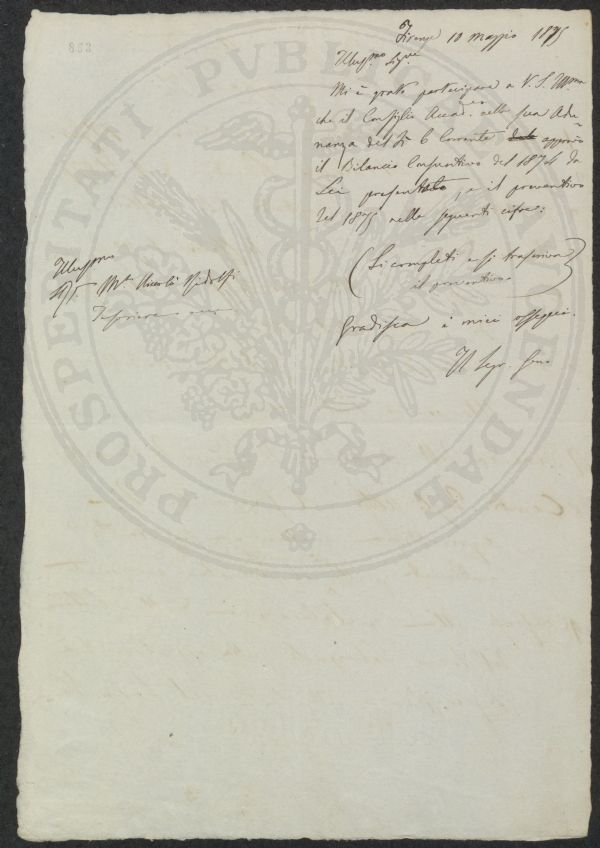 853
Firenze 10 maggio 1875
Illus.mo Sig.re
Mi è grato partecipare a V. S. Ill.ma
che il Consiglio Accad.co nella sua Adu-
nanza del dì 6 corrente approvò
il Bilancio Consuntivo del 1874 da
Lei presentato, e il preventivo
del 1875 nelle seguenti cifre:
(Si completi e si trascriva
il preventivo)
Gradisca i miei ossequi.
Il Segr. Gen.
Illus.mo
Sig. M.se Ridolfi
Tesoriere
PROSPERITATI PUBLICAE AUGENDAE